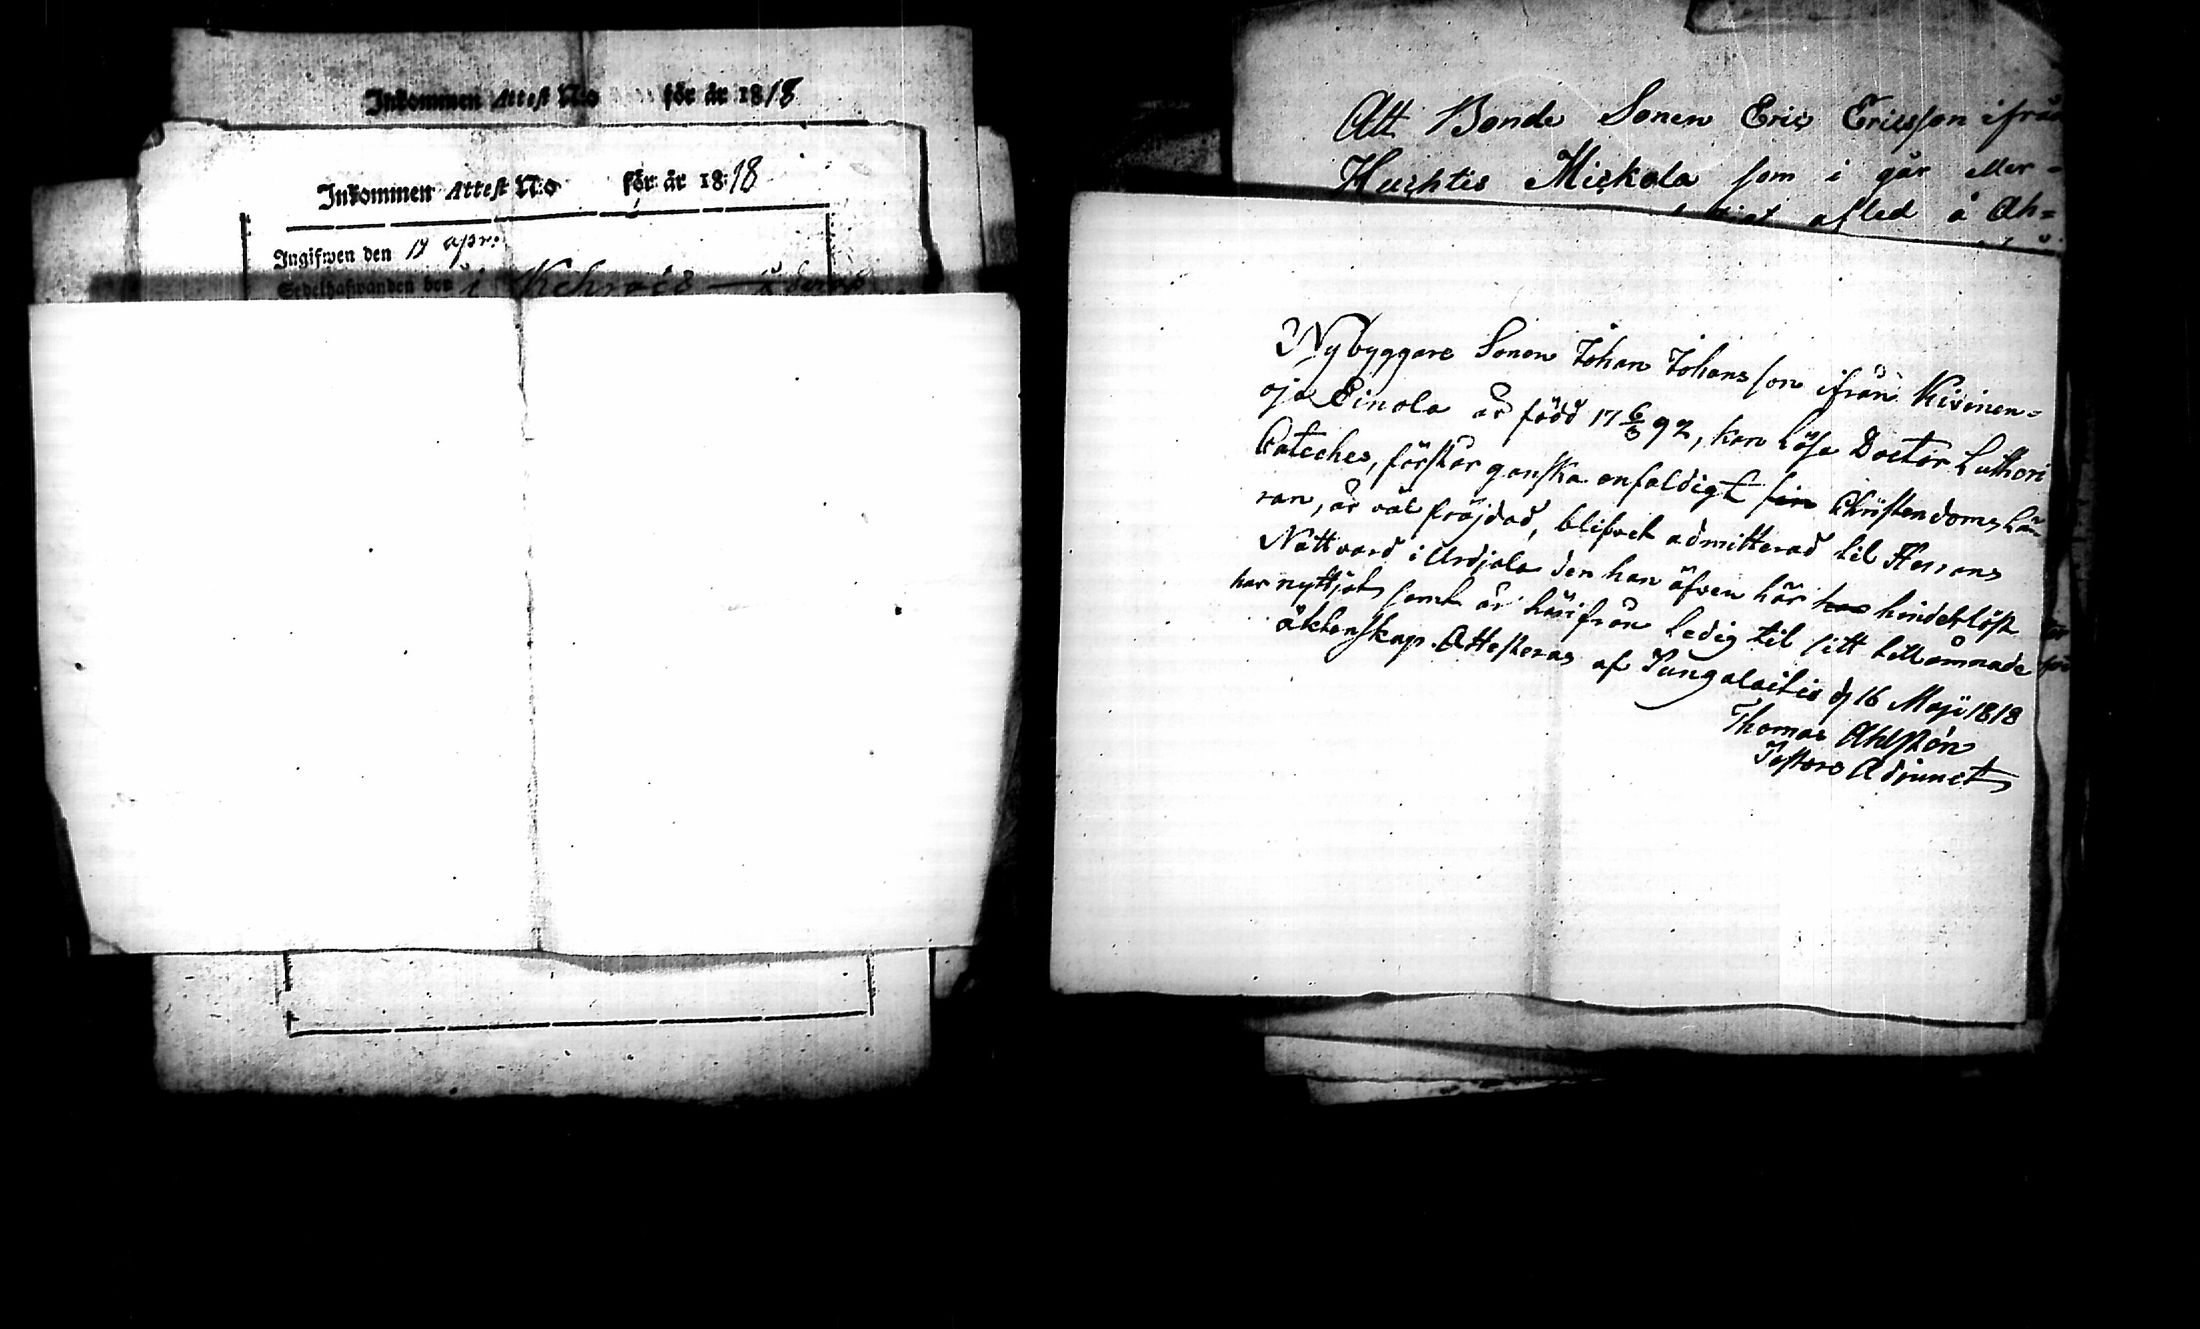 Inkommen Attest N:o för år 1818
Inkommen Attest N:o för år 1818
Ingifwen den 19 apr:
Sedelhafwanden bor i
Att Bonde Sonen Eric Ericsson ifrån
Huchtis Mickola som i går eller-
afled å Ah=
Nybyggare Sonen Johan Johansson ifrån Kivinen=
oja Einola är född 17 6/3 92, kan läsa Doctor Lutheri
Cateches, förstår ganska enfaldigt sin Christendoms lä-
ran, är väl fräjdad, blifvet admitterad til Herrans
Nattvard i Urdjala den han äfven här har hinderlöst
har nyttjat samt är härifrån ledig til sitt tillämnade
äktenskap. Attesteras af Pungalaitio d 16 Maji 1818
Thomas Ahlstén
Pastors Adjunct